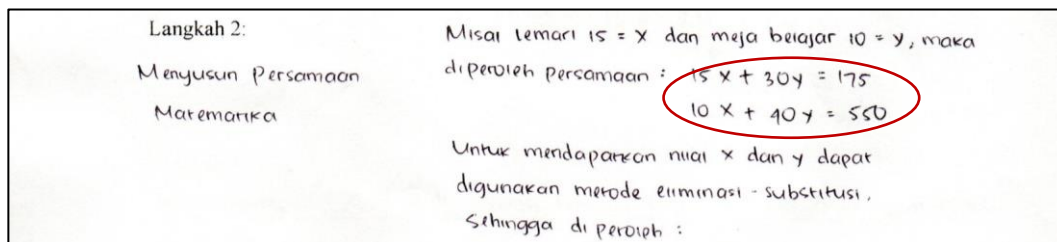 Langkah 2:
Menyusun Persamaan
Matematika
Misal lemari 15 = x dan meja belajar 10 = y, maka
diperoleh persamaan : 15 x + 30y = 175
10 x + 40 y = 550
Untuk mendapatkan nilai x dan y dapat
digunakan metode eliminasi - substitusi,
Sehingga di peroleh :